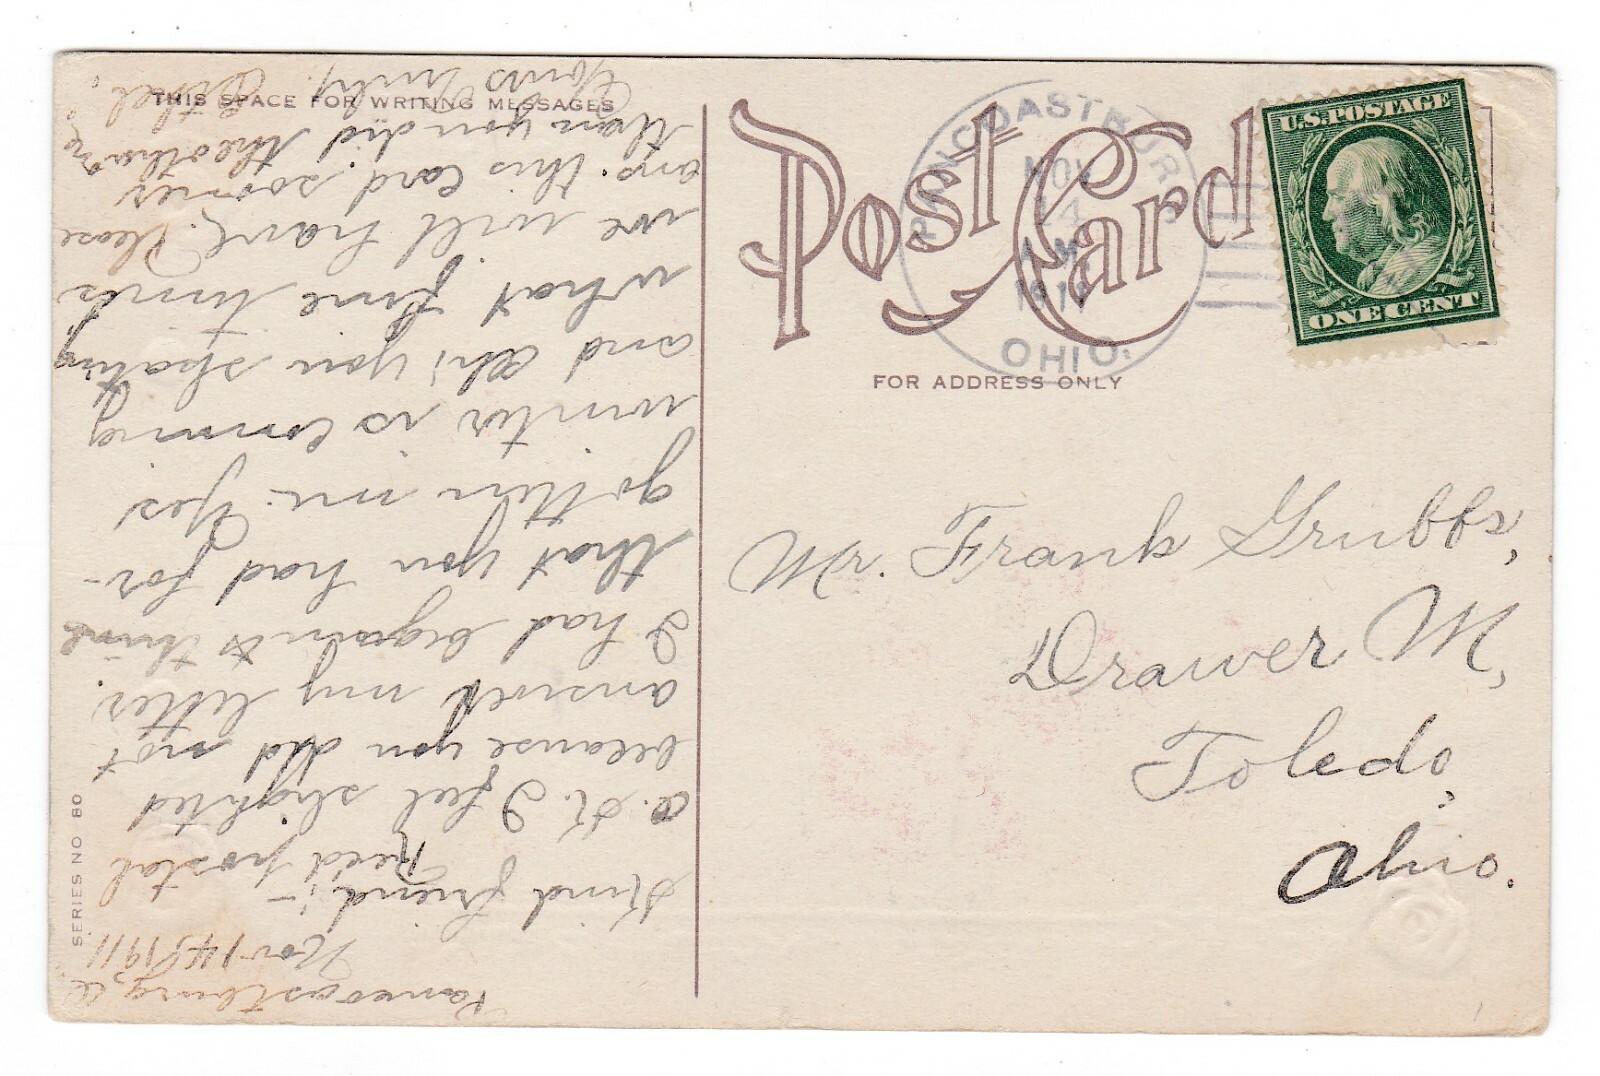 THIS SPACE FOR WRITING MESSAGES
Pancoastburg, O
Nov 14, 1911
Kind friend:-
Rec'd postal
O. K. I feel slighted
because you did not
answer my letter.
I had begun to think
that you had for-
gotten me. Yes
winter is coming
and Oh! you skating
what fine times
we will have. Please
ans. this card sooner
than you did the other
Yours Truly,
Ethel.
SERIES NO 80
Post Card
FOR ADDRESS ONLY
PANCOASTBURG
NOV
14
AM
1911
OHIO.
U.S. POSTAGE
ONE CENT
Mr. Frank Grubbs,
Drawer M,
Toledo,
Ohio.